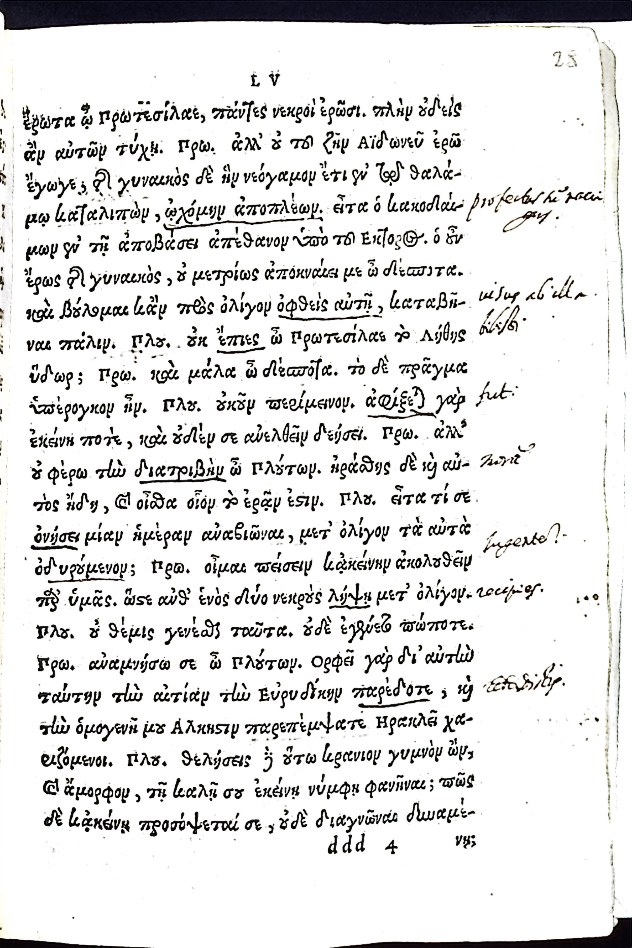 28
LV
ἔρωτα ὦ Πρωτεσίλαε, πάντες νεκροὶ ἐρῶσι. πλὴν οὐδεὶς
ἂν αὐτῶν τύχῃ. Πρω. ἀλλ' οὐ τοῦ ζῆν Αϊδωνεῦ ἐρῶ
ἔγωγε, τῆς γυναικὸς δὲ ἣν νεόγαμον ἔτι ἐν τῷ θαλά-
μῳ καταλιπὼν, ᾠχόμην ἀποπλέων. εἶτα ὁ κακοδαί-
μων ἐν τῇ ἀποβάσει ἀπέθανον ὑπὸ τοῦ Εκτορος. ὁ οὖν
ἔρως τῆς γυναικὸς, οὐ μετρίως ἀποκναίει με ὦ δέσποτα.
καὶ βούλομαι κἂν πρὸς ὀλίγον ὀφθεὶς αὐτῇ, καταβῆ-
ναι πάλιν. Πλου. οὐκ ἔπιες ὦ Πρωτεσίλαε τὸ Λήθης
ὕδωρ; Πρω. καὶ μάλα ὦ δέσποτα. τὸ δὲ πρᾶγμα
ὑπέρογκον ἦν. Πλου. οὐκοῦν περίμεινον. ἀφίξεται γὰρ
ἐκείνη ποτὲ, καὶ οὐδέν σε ἀνελθεῖν δεήσει. Πρω. ἀλλ'
οὐ φέρω τὴν διατριβὴν ὦ Πλούτων. ἠράσθης δὲ καὶ αὐ-
τὸς ἤδη, καὶ οἶσθα οἷον τὸ ἐρᾷν ἐστιν. Πλου. εἶτα τί σε
ὀνήσει μίαν ἡμέραν ἀναβιῶναι, μετ' ὀλίγον τὰ αὐτὰ
ὀδυρόμενον; Πρω. οἶμαι πείσειν κᾀκείνην ἀκολουθεῖν
παρ' ὑμᾶς. ὥστε ἀνθ' ἑνὸς δύο νεκροὺς λήψῃ μετ' ὀλίγον.
Πλου. οὐ θέμις γενέσθαι ταῦτα. οὐδὲ ἐγένετο πώποτε.
Πρω. ἀναμνήσω σε ὦ Πλούτων. Ορφεῖ γὰρ δι' αὐτὴν
ταύτην τὴν αἰτίαν τὴν Εὐρυδίκην παρέδοτε, καὶ
τὴν ὁμογενῆ μου Αλκηστιν παρεπέμψατε Ηρακλεῖ χα-
ριζόμενοι. Πλου. θελήσεις δὲ οὕτω κρανίον γυμνὸν ὢν,
καὶ ἄμορφον, τῇ καλῇ σου ἐκείνῃ νύμφῃ φανῆναι; πῶς
δὲ κᾀκείνη προσόψεταί σε, οὐδὲ διαγνῶναι δυναμέ-
ddd 4 νη;